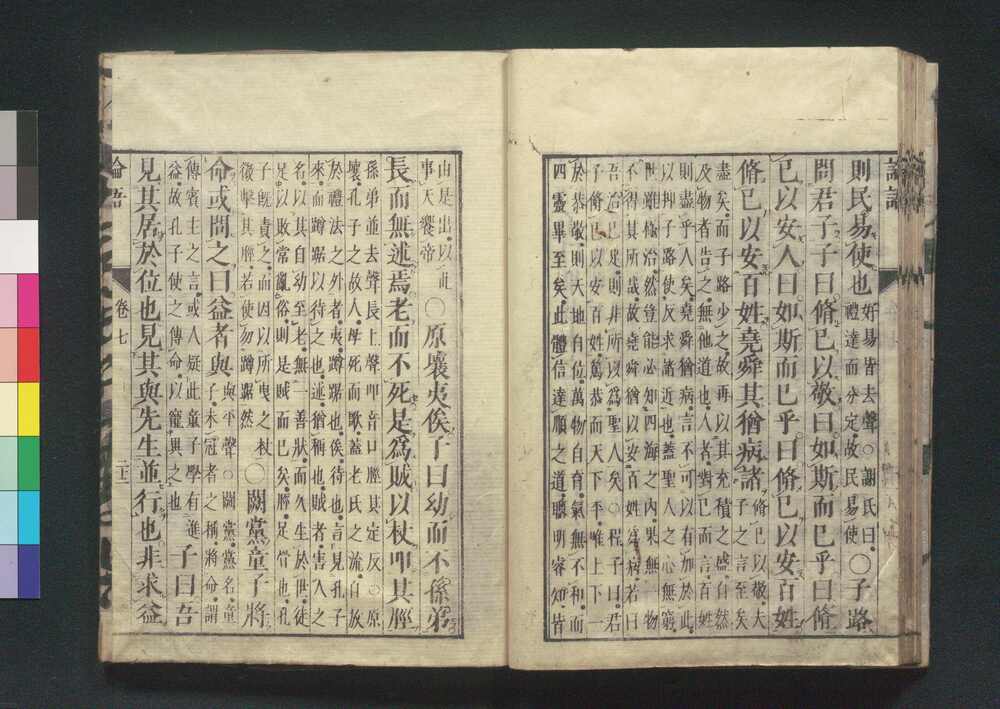 論語
則民易使也好易皆去聲○謝氏曰
禮達而分定故民易使○子路
問君子子曰脩己以敬曰如斯而已乎曰脩
己以安人曰如斯而已乎曰脩己以安百姓
脩己以安百姓堯舜其猶病諸脩己以敬夫
子之言至矣
盡矣而子路少之故再以其充積之盛自然
及物者告之無他道也人者對己而言百姓
則盡乎人矣堯舜猶病言不可以有加於此
以抑子路使反求諸近也蓋聖人之心無窮
世雖極治然豈能必知四海之內果無一物
不得其所哉故堯舜猶以安百姓爲病若曰
吾治已足則非所以爲聖人矣○程子曰君
子脩己以安百姓篤恭而天下平唯上下一
於恭敬則天地自位萬物自育氣無不和而
四靈畢至矣此體信達順之道聰明睿知皆
由是出以此
事天饗帝○原壤夷俟子曰幼而不孫弟
長而無述焉老而不死是爲賊以杖叩其脛
孫弟並去聲長上聲叩音口脛其定反○原
壤孔子之故人母死而歌蓋老氏之流自放
於禮法之外者夷蹲踞也俟待也言見孔子
來而蹲踞以待之也述猶稱也賊者害人之
名以其自幼至老無一善狀而久生於世徒
足以敗常亂俗則是賊而已矣脛足骨也孔
子旣責之而因以所曳之杖
微擊其脛若使勿蹲踞然○闕黨童子將
命或問之曰益者與與平聲○闕黨黨名童
子未冠者之稱將命謂
傳賓主之言或人疑此童子學有進
益故孔子使之傳命以寵異之也子曰吾
見其居於位也見其與先生並行也非求益
論語 卷七